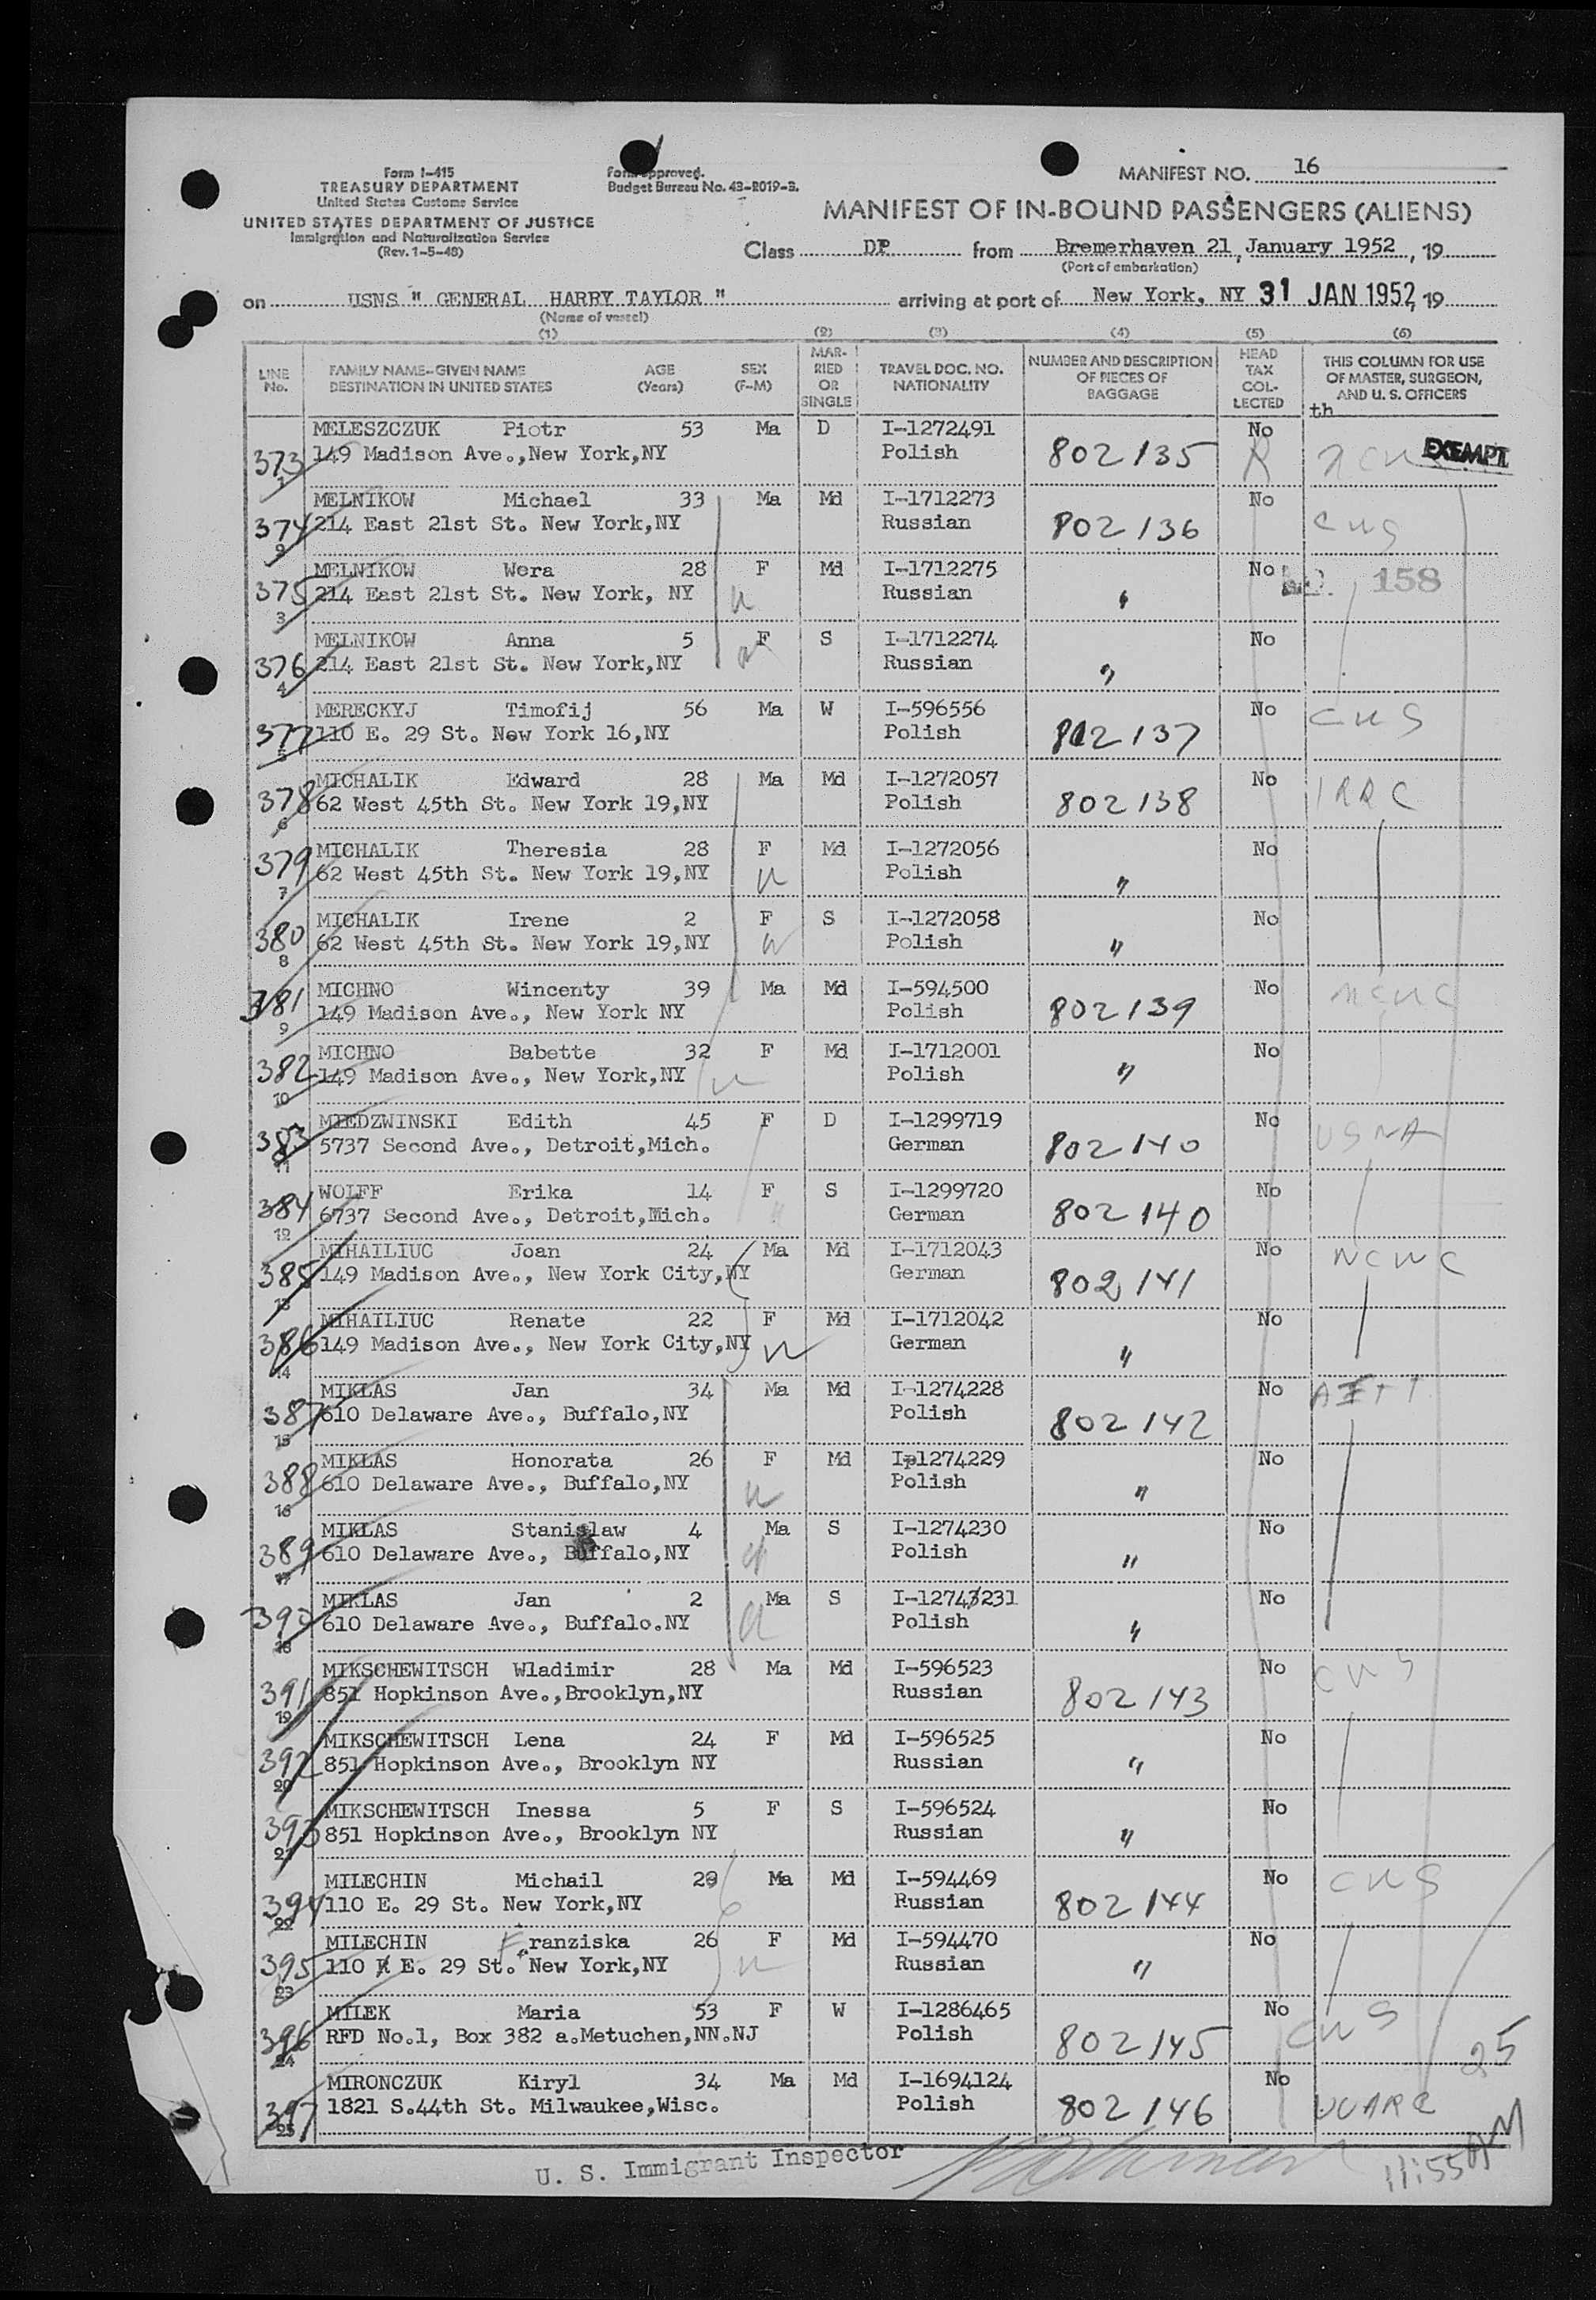 Form I-415
TREASURY DEPARTMENT
United States Customs Service
UNITED STATES DEPARTMENT OF JUSTICE
Immigration and Naturalization Service
(Rev. 1-5-48)
Form approved.
Budget Bureau No. 43-R019-3.
MANIFEST NO. 16
MANIFEST OF IN-BOUND PASSENGERS (ALIENS)
Class DP from Bremerhaven 21, January 1952, 19
(Port of embarkation)
on USNS " GENERAL HARRY TAYLOR " arriving at port of New York, NY 31 JAN 1952, 19
(Name of vessel)
(1) (2) (3) (4) (5) (6)
LINE No. FAMILY NAME-GIVEN NAME DESTINATION IN UNITED STATES AGE (Years) SEX (F-M) MARRIED OR SINGLE TRAVEL DOC. NO. NATIONALITY NUMBER AND DESCRIPTION OF PIECES OF BAGGAGE HEAD TAX COLLECTED THIS COLUMN FOR USE OF MASTER, SURGEON, AND U. S. OFFICERS
th
MELESZCZUK Piotr 53 Ma D I-1272491 No
373 1 149 Madison Ave.,New York,NY Polish 802135 R EXEMPT
MELNIKOW Michael 33 Ma Md I-1712273 No
374 2 214 East 21st St. New York,NY Russian 802136 CWS
MELNIKOW Wera 28 F Md I-1712275 No
375 3 214 East 21st St. New York, NY Russian " 158
MELNIKOW Anna 5 F S I-1712274 No
376 4 214 East 21st St. New York,NY Russian "
MERECKYJ Timofij 56 Ma W I-596556 No CWS
377 5 110 E. 29 St. New York 16,NY Polish 802137
MICHALIK Edward 28 Ma Md I-1272057 No IRRC
378 6 62 West 45th St. New York 19,NY Polish 802138
MICHALIK Theresia 28 F Md I-1272056 No
379 7 62 West 45th St. New York 19,NY Polish "
MICHALIK Irene 2 F S I-1272058 No
380 8 62 West 45th St. New York 19,NY Polish "
MICHNO Wincenty 39 Ma Md I-594500 No NCWC
381 9 149 Madison Ave., New York NY Polish 802139
MICHNO Babette 32 F Md I-1712001 No
382 10 149 Madison Ave., New York,NY Polish "
MIEDZWINSKI Edith 45 F D I-1299719 No USNA
383 11 5737 Second Ave., Detroit,Mich. German 802140
WOLFF Erika 14 F S I-1299720 No
384 12 6737 Second Ave., Detroit,Mich. German 802140
MIHAILIUC Joan 24 Ma Md I-1712043 No NCWC
385 13 149 Madison Ave., New York City,NY German 802141
MIHAILIUC Renate 22 F Md I-1712042 No
386 14 149 Madison Ave., New York City,NY German "
MIKLAS Jan 34 Ma Md I-1274228 No
387 15 610 Delaware Ave., Buffalo,NY Polish 802142
MIKLAS Honorata 26 F Md I-1274229 No
388 16 610 Delaware Ave., Buffalo,NY Polish "
MIKLAS Stanislaw 4 Ma S I-1274230 No
389 17 610 Delaware Ave., Buffalo,NY Polish "
MIKLAS Jan 2 Ma S I-1274231 No
390 18 610 Delaware Ave., Buffalo.NY Polish "
MIKSCHEWITSCH Wladimir 28 Ma Md I-596523 No CWS
391 19 851 Hopkinson Ave.,Brooklyn,NY Russian 802143
MIKSCHEWITSCH Lena 24 F Md I-596525 No
392 20 851 Hopkinson Ave., Brooklyn NY Russian "
MIKSCHEWITSCH Inessa 5 F S I-596524 No
393 21 851 Hopkinson Ave., Brooklyn NY Russian "
MILECHIN Michail 29 Ma Md I-594469 No CWS
394 22 110 E. 29 St. New York,NY Russian 802144
MILECHIN Franziska 26 F Md I-594470 No
395 23 110 E. 29 St. New York,NY Russian "
MILEK Maria 53 F W I-1286465 No CWS
396 24 RFD No.1, Box 382 a.Metuchen,NN.NJ Polish 802145 25
MIRONCZUK Kiryl 34 Ma Md I-1694124 No
397 25 1821 S.44th St. Milwaukee,Wisc. Polish 802146 UUARC
U. S. Immigrant Inspector 11:55 AM